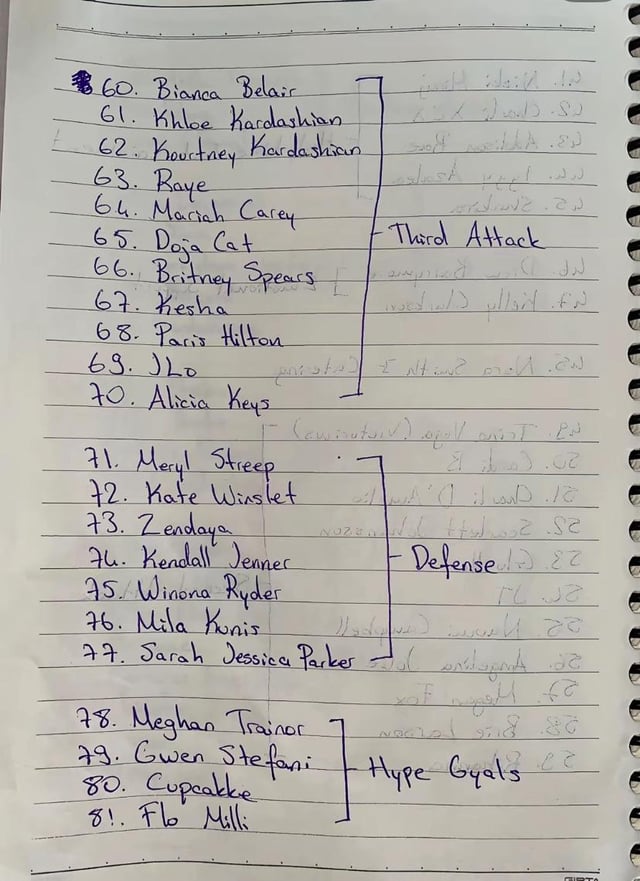 60. Bianca Belair
61. Khloe Kardashian
62. Kourtney Kardashian
63. Raye
64. Mariah Carey
65. Doja Cat
Third Attack
66. Britney Spears
67. Kesha
68. Paris Hilton
69. JLo
70. Alicia Keys
71. Meryl Streep
72. Kate Winslet
73. Zendaya
74. Kendall Jenner
Defense
75. Winona Ryder
76. Mila Kunis
77. Sarah Jessica Parker
78. Meghan Trainor
79. Gwen Stefani
Hype Gyals
80. Cupcakke
81. Flo Milli